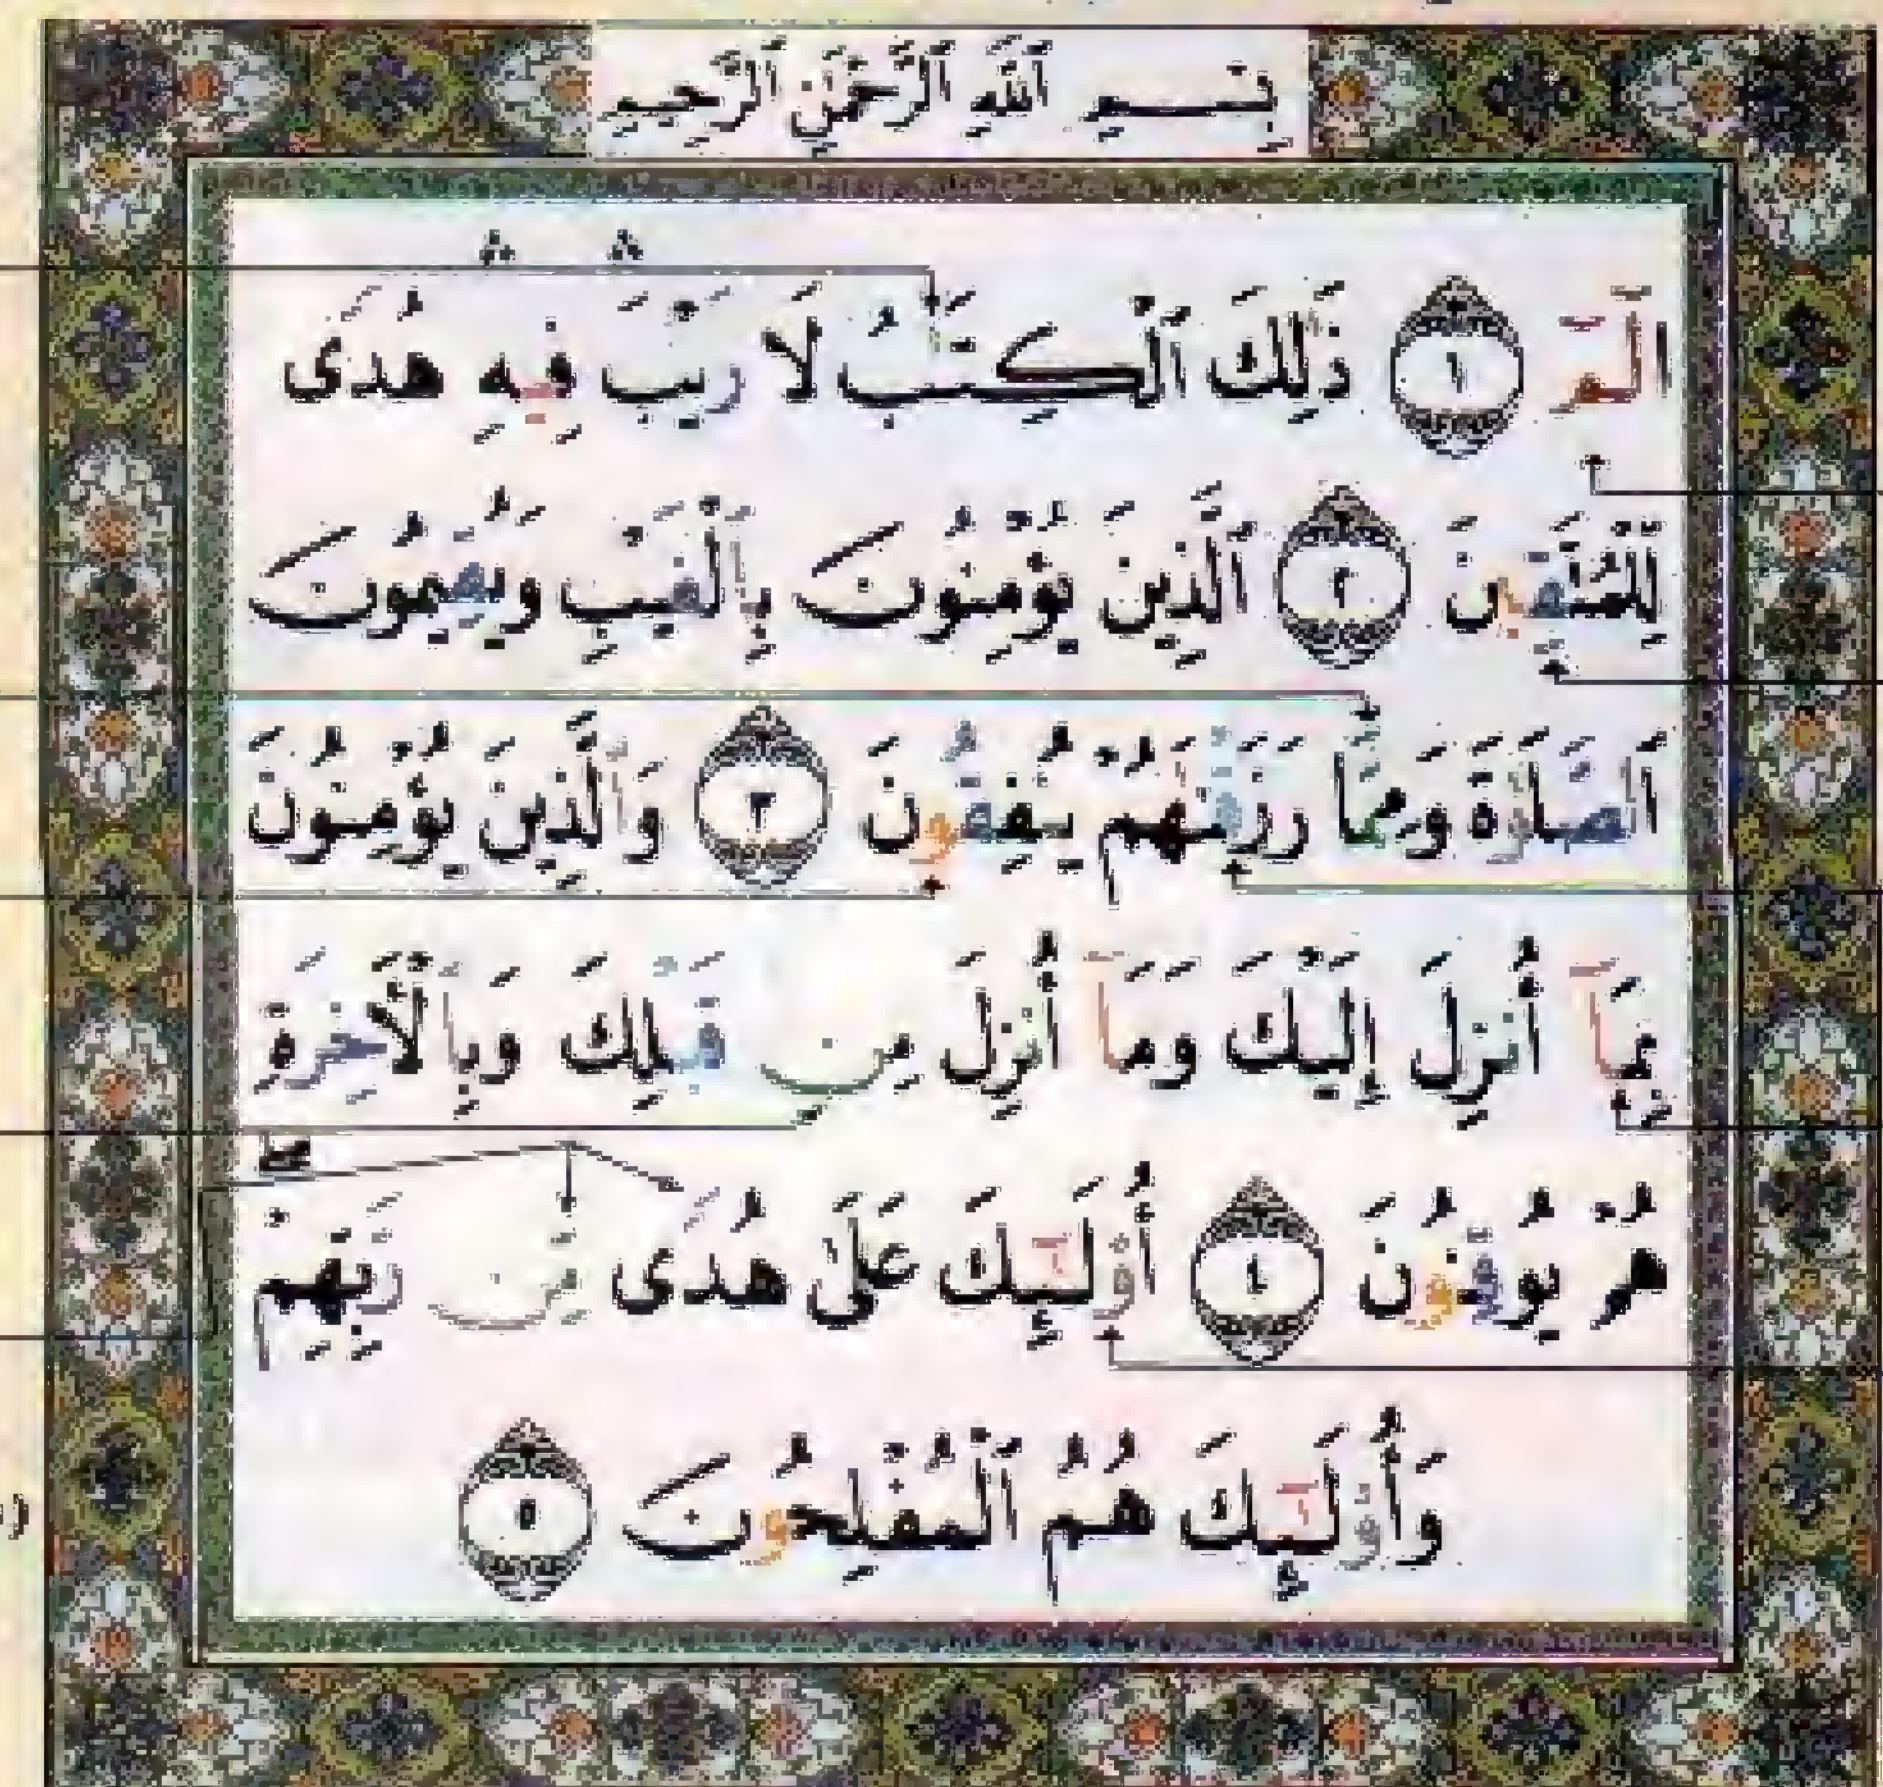 بِسْمِ ٱللَّهِ ٱلرَّحْمَٰنِ ٱلرَّحِيمِ
الٓمٓ ١ ذَٰلِكَ ٱلْكِتَٰبُ لَا رَيْبَ ۛ فِيهِ ۛ هُدًى
لِّلْمُتَّقِينَ ٢ ٱلَّذِينَ يُؤْمِنُونَ بِٱلْغَيْبِ وَيُقِيمُونَ
ٱلصَّلَوٰةَ وَمِمَّا رَزَقْنَٰهُمْ يُنفِقُونَ ٣ وَٱلَّذِينَ يُؤْمِنُونَ
بِمَآ أُنزِلَ إِلَيْكَ وَمَآ أُنزِلَ مِن قَبْلِكَ وَبِٱلْأَخِرَةِ
هُمْ يُوقِنُونَ ٤ أُو۟لَٰٓئِكَ عَلَىٰ هُدًى مِّن رَّبِّهِمْ ۖ
وَأُو۟لَٰٓئِكَ هُمُ ٱلْمُفْلِحُونَ ٥